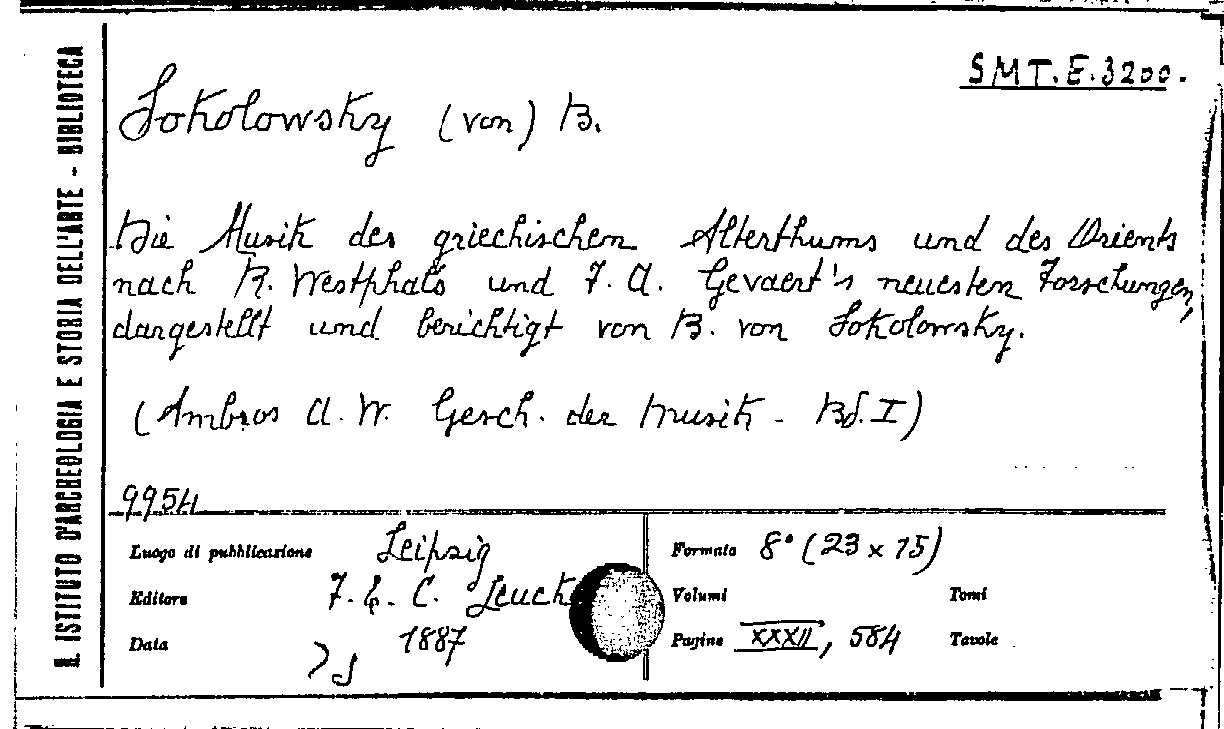 R. ISTITUTO D'ARCHEOLOGIA E STORIA DELL'ARTE - BIBLIOTECA
SMT.E.3200.
Sokolowsky (von) B.
Die Musik des griechischen Alterthums und des Orients
nach R. Westphals und F. A. Gevaert's neuesten Forschungen,
dargestellt und berichtigt von B. von Sokolowsky.
(Ambros A. W. Gesch. der Musik - Bd. I)
9954
Luogo di pubblicazione Leipzig
Editore F. E. C. Leuck
Data 1887
Formato 8° (23 x 15)
Volumi Tomi
Pagine XXXII, 584 Tavole